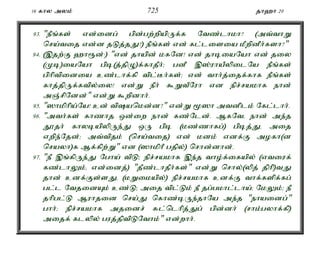 16 கால அலம் 725 தாஹா 20
93. "நீங்கள் என்னைப் பின்பற்றியிருக்க வேண்டாமா? (அவ்வாறு
செய்வதை என்ன தடுத்தது?) நீங்கள் என் கட்டளையை மீறினீர்களா?"
94. (இதற்கு ஹாரூன்:) "என் தாயின் மகனே! என் தாடியையோ என் தலை
(முடி)யையோ பிடி(த்திழு)க்காதீர்; பனீ இஸ்ராயீலிடையே நீங்கள்
பிரிவினையை உண்டாக்கி விட்டீர்கள்; என் வார்த்தைக்காக நீங்கள்
காத்திருக்கவில்லை! என்று நீர் கூறுவீரோ என நிச்சயமாக நான்
அஞ்சினேன்" என்று கூறினார்.
95. "ஸாமிரீய்யே! உன் விஷயமென்ன?" என்று மூஸா அவனிடம் கேட்டார்.
96. "அவர்கள் காணாத ஒன்றை நான் கண்டேன். ஆகவே, நான் அந்த
தூதர் காலடியிலிருந்து ஒரு பிடி (மண்ணாகப்) பிடித்து, அதை
எறிந்தேன்; அவ்விதம் (செய்வதை) என் மனம் எனக்கு அழகா(ன
செயலா)க ஆக்கிற்று" என (ஸாமிரீ பதில்) சொன்னான்.
97. "நீ இங்கிருந்து போய் விடு; நிச்சயமாக இந்த வாழ்க்கையில் (எவரைக்
கண்டாலும், என்னைத்) "தீண்டாதீர்கள்" என்று சொல்(லித் திரி)வது
தான் உனக்குள்ளது. (மறுமையில்) நிச்சயமாக உனக்கு வாக்களிக்கப்
பட்ட வேதனையும் உண்டு; அதை விட்டும் நீ தப்பமாட்டாய்; மேலும்; நீ
தரிபட்டு ஆராதனை செய்து கொண்டிருந்தாயே அந்த "நாயனைப்"
பார்; நிச்சயமாக அதனைச் சுட்டெரித்துப் பின்னர் (சாம்பலாக்கி)
அதைக் கடலில் பரத்திவிடுவோம்" என்றார்.